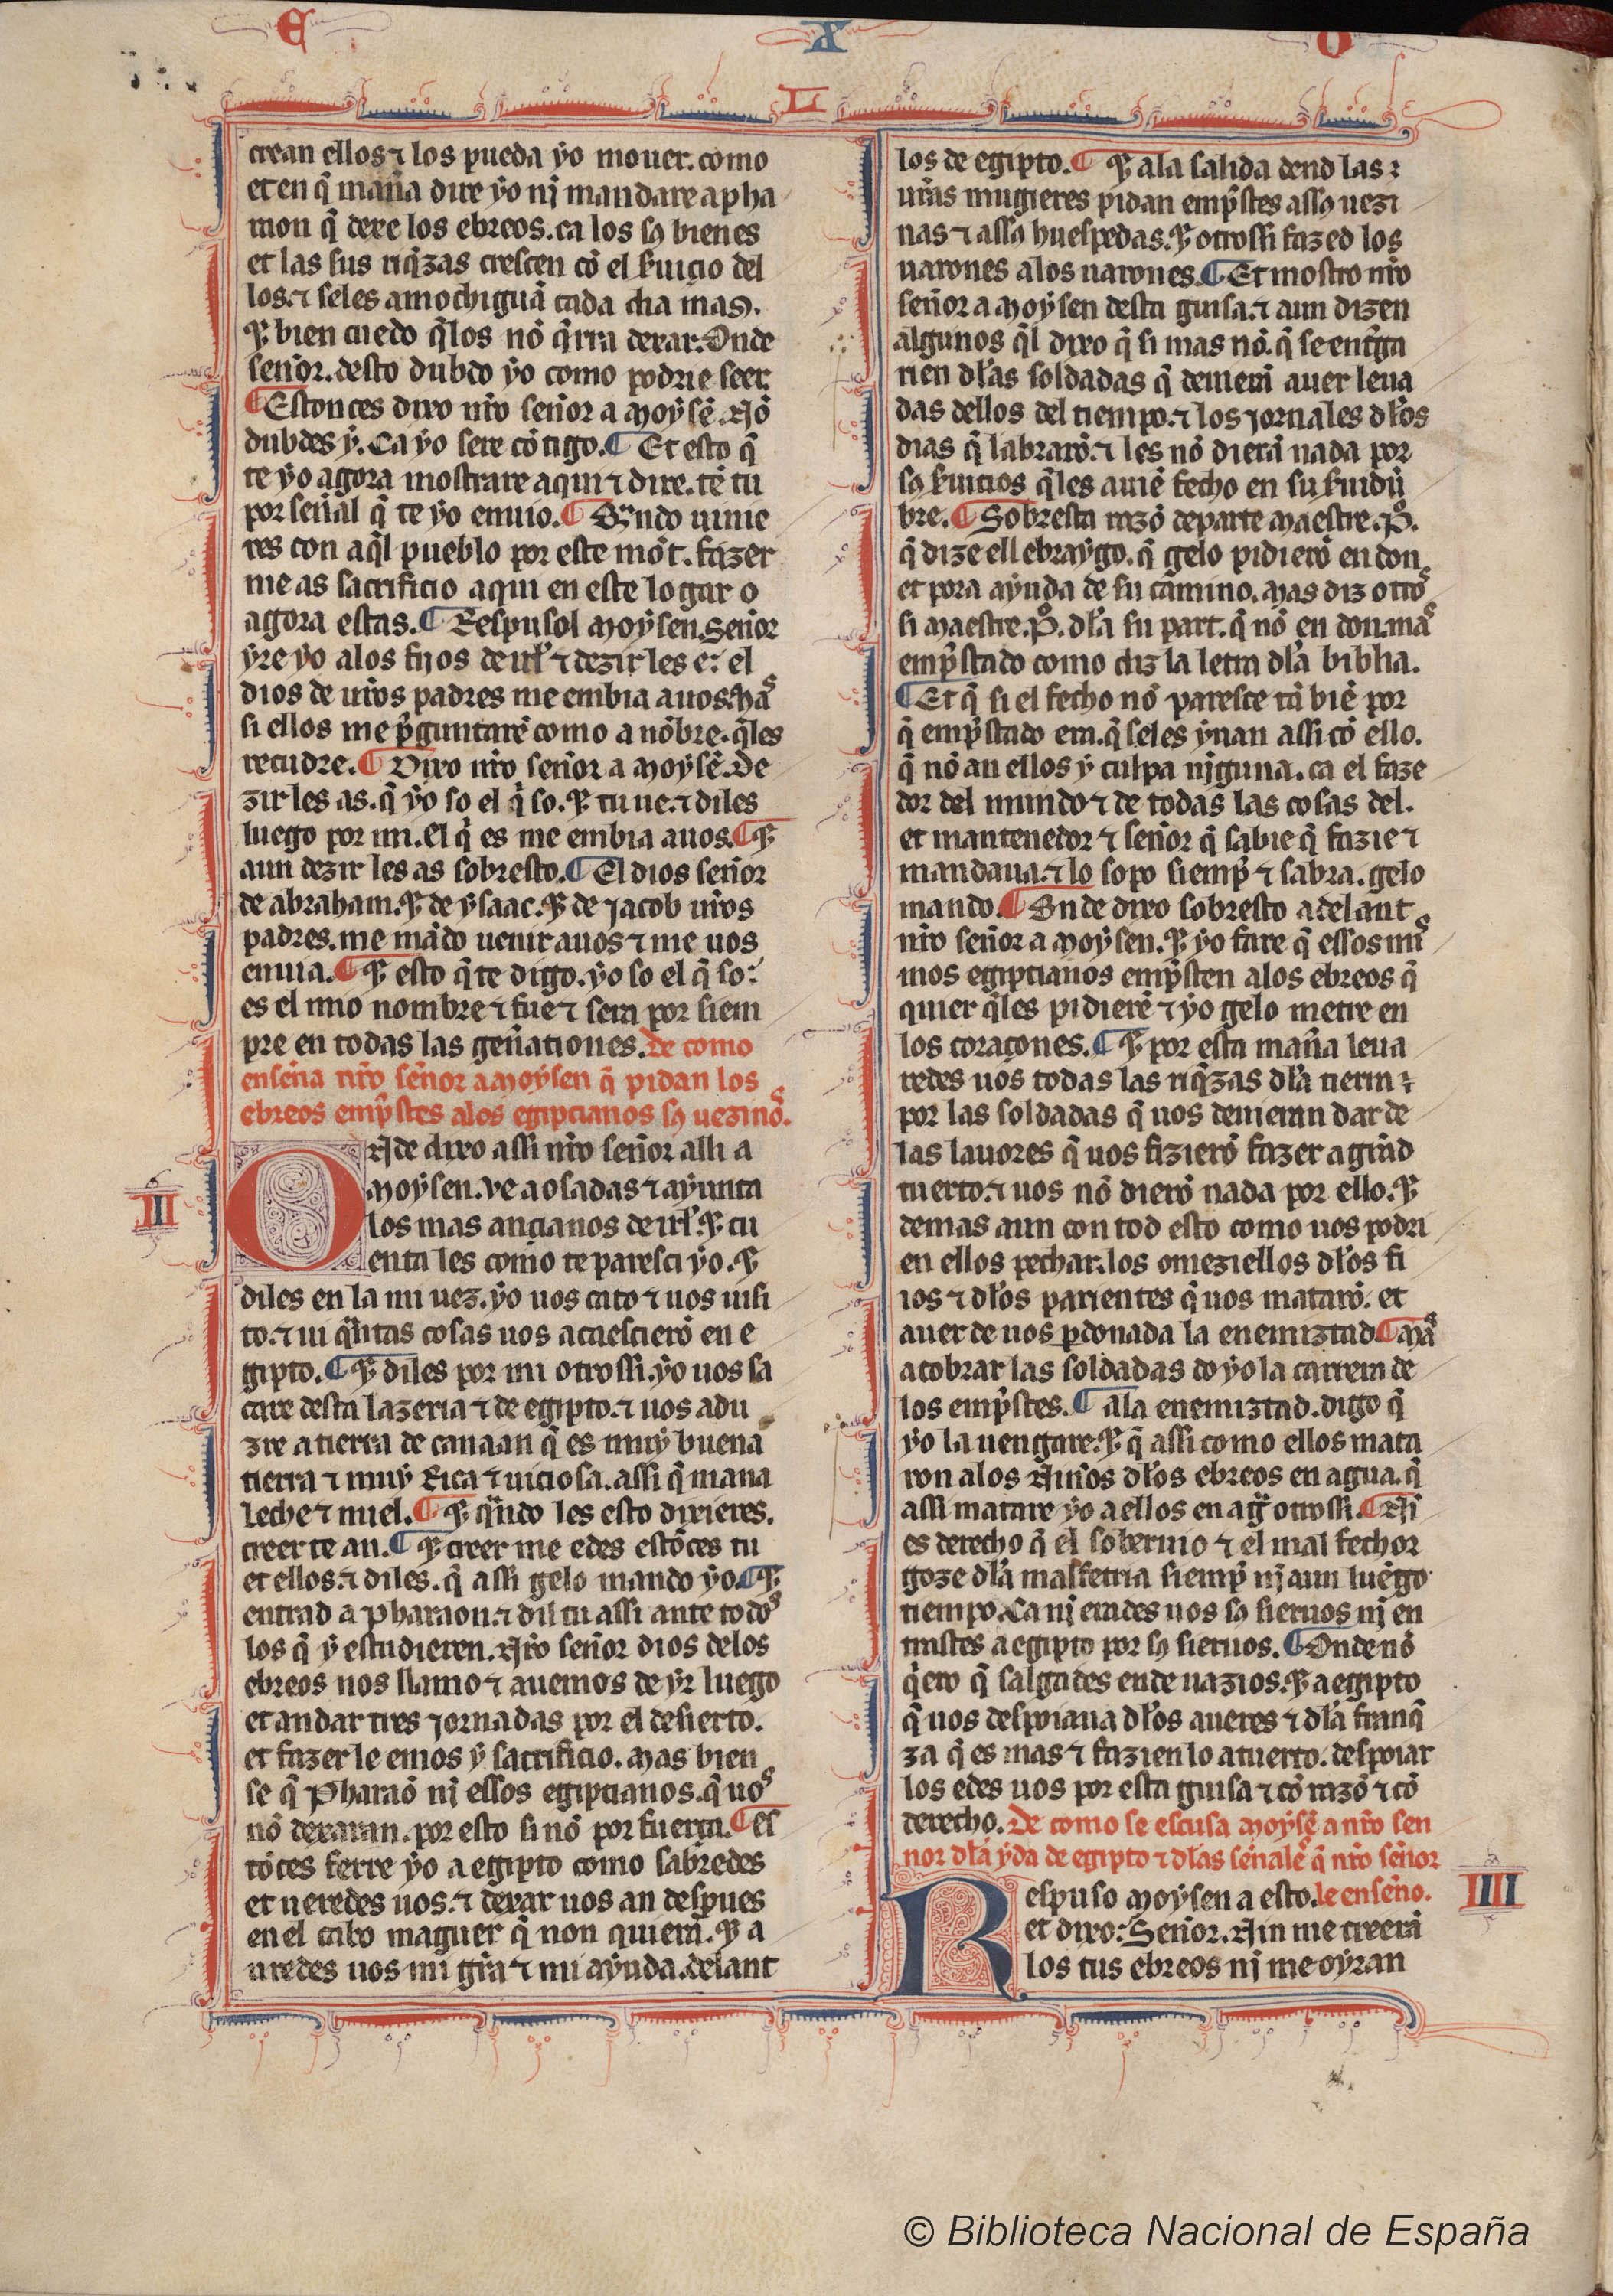 E X O
L
crean ellos ⁊ los pueda yo mouer. como
et en q̃ mañã dire yo nj̃ mandare a pha
raon q̃ dexe los ebreos. ca los sꝯ bienes
et las sus riq̃zas crescen cõ el s̃uicio del
los. ⁊ seles amochiguã cada dia mas.
⁊ bien cuedo q̃ los nõ q̃rra dexar. Onde
sen̄or. desto dubdo yo como podrie seer.
¶ Estonces dixo nr̃o sen̄or a moysẽ. Nõ
dubdes y. Ca yo sere cõtigo. ¶ Et esto q̃
te yo agora mostrare aqui ⁊ dire. tẽ tu
por sen̄al q̃ te yo enuio. ¶ Quãndo uinie
res con aq̃l pueblo por este mõt. fazer
me as sacrificio aqui en este logar o
agora estas. ¶ Respusol moysen. Sen̄or
yre yo alos fijos de irl̃ ⁊ dezir les e: el
dios de ur̃os padres me embia auos. Mas
si ellos me p̃guntarẽ como a nõbre. q̃les
recudre. ¶ Dixo nr̃o sen̄or a moysẽ. De
zir les as. q̃ yo so el q̃ so. ⁊ tu ue. ⁊ diles
luego por mi. El q̃ es me embia auos. ¶ ⁊
aun dezir les as sobresto. ¶ El dios sen̄or
de abraham. ⁊ de ysaac. ⁊ de jacob ur̃os
padres. me mãdo uenir auos ⁊ me uos
enuia. ¶ ⁊ esto q̃ te digo. yo so el q̃ so:
es el mio nombre ⁊ fue ⁊ sera por siem
pre en todas las gen̄ationes. De como
ensen̄a nr̃o sen̄or a moysen q̃ pidan los
ebreos emp̃stes alos egiptianos sꝯ uezinos.
II
ONde dixo assi nr̃o sen̄or alli a
moysen. Ve aosadas ⁊ ayunta
los mas ancianos de irl̃. ⁊ cu
enta les como te paresci yo. ⁊
diles en la mi uez. yo uos cato ⁊ uos uisi
to. ⁊ ui q̃ntas cosas uos acaescierõ en e
gipto. ¶ ⁊ diles por mi otrossi. yo uos sa
care desta lazeria ⁊ de egipto. ⁊ uos adu
zre a tierra de canaan q̃ es muy buena
tierra ⁊ muy Rica ⁊ uiciosa. assi q̃ mana
leche ⁊ miel. ¶ ⁊ q̃ndo les esto dixieres.
creer te an. ¶ ⁊ creer me edes estõces tu
et ellos. ⁊ diles. q̃ assi gelo mando yo. ¶ ⁊
entrad a pharaon. ⁊ dil tu assi ante todos
los q̃ y estudieren. Nr̃o sen̄or dios delos
ebreos nos llamo ⁊ auemos de yr luego
et andar tres jornadas por el desierto.
et fazer le emos y sacrificio. Mas bien
se q̃ Pharaõ nj̃ essos egiptianos. q̃ uos
nõ dexaran. por esto si nõ por fuerça. ¶ es
tõces ferre yo a egipto como sabredes
et ueredes uos. ⁊ dexar uos an despues
en el cabo maguer q̃ non quierã. ⁊ a
uredes uos mi gr̃a ⁊ mi ayuda. delant
los de egipto. ¶ ⁊ ala salida dend las:
ur̃as mugieres pidan emp̃stes assꝯ uezi
nas ⁊ assꝯ huespedas. ⁊ otrossi fazed los
uarones alos uarones. ¶ Et mostro nr̃o
sen̄or a moysen desta guisa. ⁊ aun dizen
algunos q̃l dixo q̃ si mas nõ. q̃ se entr̃ga
rien dl̃as soldadas q̃ deuierã auer leua
das dellos del tiempo. ⁊ los jornales dl̃os
dias q̃ labrarõ. ⁊ les nõ dierã nada por
sꝯ s̃uicios q̃les auiẽ fecho en su s̃uidũ
bre. ¶ Sobresta razõ departe maestre. P̊.
q̃ dize ell ebraygo. q̃ gelo pidierõ en don.
et pora ayuda de su camino. Mas diz otro
si maestre. P̊. dl̃a su part. q̃ nõ en don. mas
emp̃stado como diz la letra dl̃a biblia.
¶ Et q̃ si el fecho nõ paresce tã biẽ por
q̃ emp̃stado era. q̃ seles yuan assi cõ ello.
q̃ nõ an ellos y culpa nj̃guna. ca el faze
dor del mundo ⁊ de todas las cosas del.
et mantenedor ⁊ sen̄or q̃ sabie q̃ fazie ⁊
mandaua. ⁊ lo sopo siemp̃ ⁊ sabra. gelo
mando. ¶ Onde dixo sobresto adelant
nr̃o sen̄or a moysen. ⁊ yo fare q̃ essos mis
mos egiptianos emp̃sten alos ebreos q̃
quier q̃les pidierẽ ⁊ yo gelo metre en
los coraçones. ¶ ⁊ por esta mañã leua
redes uos todas las riq̃zas dl̃a tierra:
por las soldadas q̃ uos deuieran dar de
las lauores q̃ uos fizierõ fazer a grãd
tuerto. ⁊ uos nõ dierõ nada por ello. ⁊
demas aun con tod esto como uos podri
en ellos pechar. los omeziellos dl̃os fi
ios ⁊ dl̃os parientes q̃ uos matarõ. et
auer de uos p̱donada la enemiztad ¶ Mas
a cobrar las soldadas do yo la carrera de
los emp̃stes. ¶ ala enemiztad. digo q̃
yo la uengare. ⁊ q̃ assi como ellos mata
ron alos Nin̄os dl̃os ebreos en agua. q̃
assi matare yo a ellos en agua otrossi. ¶ Nj̃
es derecho q̃ el soberuio ⁊ el mal fechor
goze dl̃a malfetria siemp̃ nj̃ aun luẽgo
tiempo. Ca nj̃ erades uos sꝯ sieruos nj̃ en
trastes a egipto por sꝯ sieruos. ¶ Onde nõ
q̃ero q̃ salgades ende uazios. ⁊ a egipto
q̃ uos despoiaua dl̃os aueres ⁊ dl̃a franq̃
za q̃ es mas ⁊ fazien lo a tuerto. despoiar
los edes uos por esta guisa ⁊ cõ razõ ⁊ cõ
derecho. De como se escusa moysẽ a nr̃o sen
nor dl̃a yda de egipto ⁊ dl̃as sen̄ales q̃ nr̃o sen̄or
IIII
Respuso moysen a esto. le ensen̄o.
et dixo: Sen̄or. Nin me creerã
los tus ebreos nj̃ me oyran
© Biblioteca Nacional de España